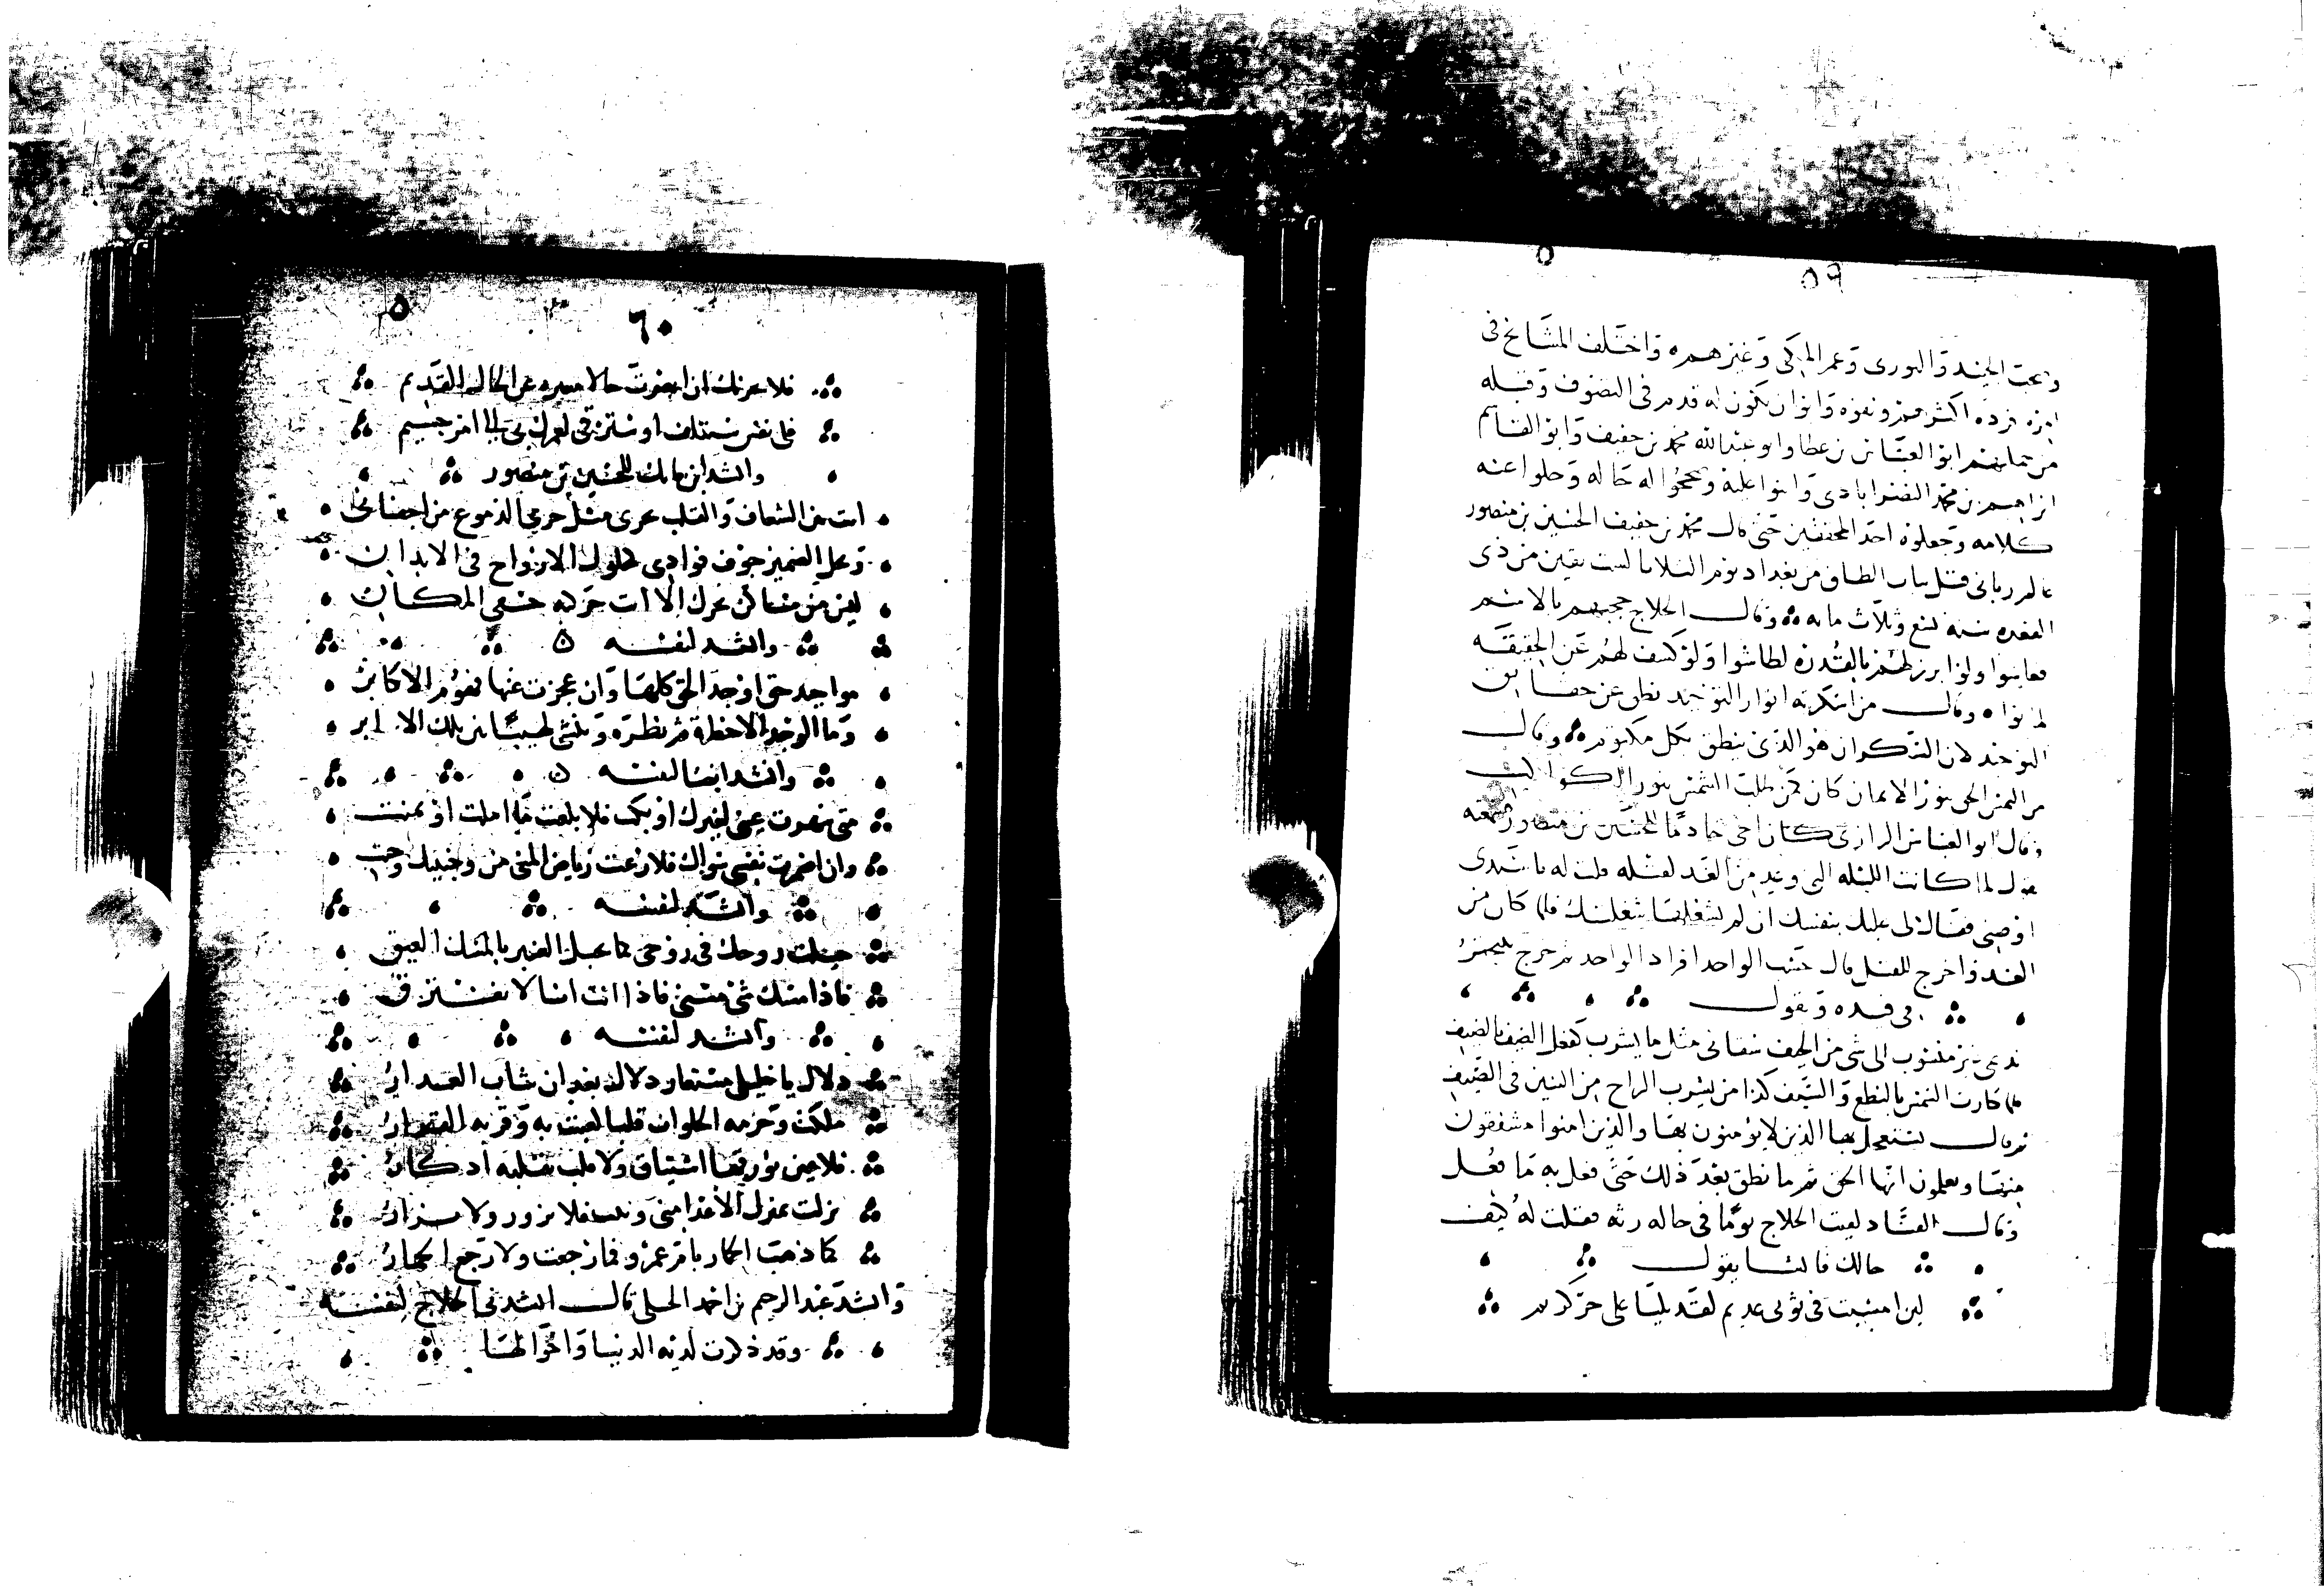 ٥٩
وصحب الجنيد والنوري وعمر المكي وغيرهم واختلف المشايخ في
امره فرده اكثرهم ونفوه وابوا ان يكون له قدم في التصوف وقبله
من جملتهم ابو العباس بن عطا وابو عبد الله محمد بن خفيف وابو القاسم
ابراهيم بن محمد النصراباذي واثنوا عليه وصححوا له حاله وحكوا عنه
كلامه وجعلوه احد المحققين حتى قال محمد بن خفيف الحسين بن منصور
عالم رباني قتل بباب الطاق من بغداد يوم الثلاثا لست بقين من ذي
القعده سنه تسع وثلاث مايه وقال الحلاج حجبهم بالاسم
فعاشوا ولو ابرز لهم بالقدرة لطاشوا ولو كشف لهم عن الحقيقه
لماتوا وقال من اسكرته انوار التوحيد نطق عن حقايق
التوحيد لان السكران هو الذي ينطق بكل مكتوم وقال
من التمس الحق بنور الايمان كان كمن طلب الشمس بنور الكواكب
وقال ابو العباس الرازي كان اخي خادما للحسين بن منصور فسمعته
يقول لما كانت الليله التي وعد من الغد لقتله قلت له يا سيدي
اوصني فقال لي عليك بنفسك ان لم تشغلها شغلتك فلما كان من
الغد واخرج للقتل قال حسب الواحد افراد الواحد ثم خرج يتبختر
في قيده ويقول
نديمي غير منسوب الى شي من الحيف سقاني مثل ما يشرب كفعل الضيف بالضيف
فلما دارت الكاس بالنطع والسيف كذا من يشرب الراح مع التنين في الصيف
ثم قال يستعجل بها الذين لا يؤمنون بها والذين امنوا مشفقون
منها ويعلمون انها الحق ثم ما نطق بعد ذلك حتى فعل به ما فعل
وقال القناد لقيت الحلاج يوما في حاله رثه فقلت له كيف
حالك فانشا يقول
لين امسيت في ثوبي عديم لقد بليا على حر كريم
٦٠
فلا يحزنك ان ابصرت حالا مغيره عن الحال القديم
فلي نفس ستتلف او سترقى لعمرك بي الى امر جسيم
وانشد ابن فاتك للحسين بن منصور
انت بين الشغاف والقلب تجري مثل جري الدموع من اجفاني
وتحل الضمير جوف فوادي كحلول الارواح في الابدان
ليس من ساكن تحرك الا انت حركته خفي المكان
وانشد لنفسه
مواجيد حق اوجد الحق كلها وان عجزت عنها فهوم الاكابر
وما الوجد الا خطرة ثم نظرة وتنشي لهيبا بين تلك
وانشد ايضا لنفسه
متى سهرت عيني لغيرك او بكت فلا بلغت ما املت او تمنت
وان اضمرت نفسي سواك فلا رعت رياض المنى من وجنتيك وجنت
وانشد لنفسه
جبلت روحك في روحي كما يجبل العنبر بالمسك العبق
فاذا مسك شي مسني فاذا انت انا لا نفترق
وانشد لنفسه
دلال يا خليل مستعار دلال بعد ان شاب العذار
ملكت وحرمه الخلوات قلبا لعبت به وقر به القرار
فلا عين يؤرقها اشتياق ولا قلب يقلبه ادكار
نزلت بمنزل الاعدا مني وبنت فلا تزور ولا تزار
كما ذهب الحمار بام عمرو فما رجعت ولا رجع الحمار
وانشد عبد الرحيم بن احمد قال انشدني الحلاج لنفسه
وقد ذكرت لديه الدنيا واحوالها